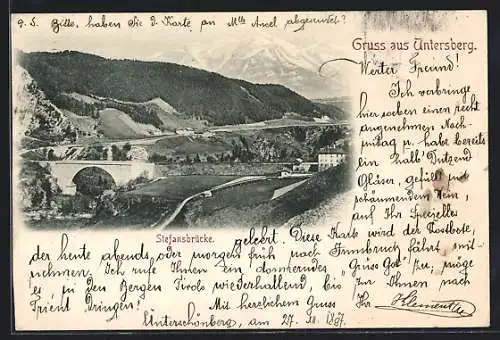 9. S. Bitte, haben Sie d. Karte an Mlle abgesendet?
Gruss aus Untersberg.
Werter Freund!
Ich verbringe
hier soeben einen recht
angenehmen Nach-
mittag u. habe bereits
ein halb Dutzend
Gläser, gefüllt mit
schäumendem
auf Ihr Specielles
Stefansbrücke.
geleert. Diese Karte wird der Postbote,
der heute abends oder morgen früh nach Innsbruck fährt mit-
nehmen. Ich rufe Ihnen ein donnerndes "Grüss Gott" zu, möge
es in den Bergen Tirols wiederhallend, bis zu Ihnen nach
Trient dringen! Mit herzlichem Gruss Ihr
Unterschönberg, am 27.